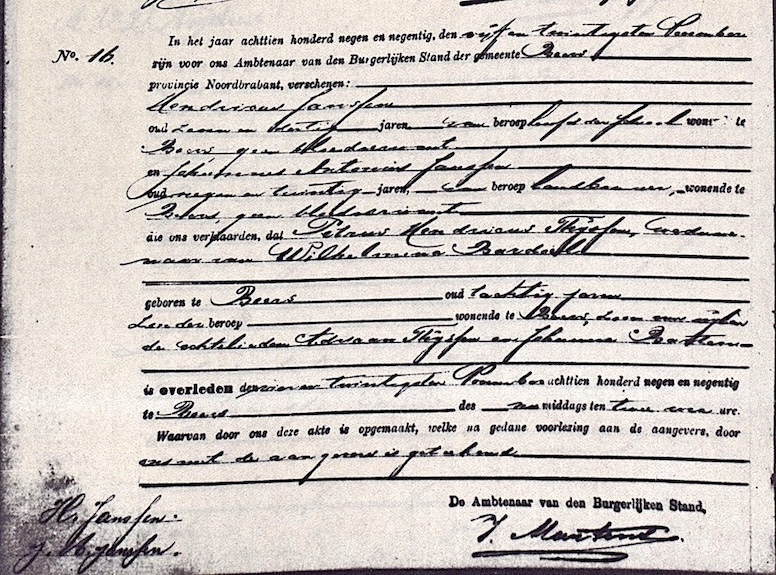 No. 16.
In het jaar achttien honderd negen en negentig, den vijf en twintigsten
zijn voor ons Ambtenaar van den Burgerlijken Stand der gemeente Beers
provincie Noordbrabant, verschenen:
Hendricus Janssen
oud zeven en dertig jaren, van beroep hoofd der school wonende te
Beers geen bloedverwant
en Johannes Antonius Janssen
oud negen en twintig jaren, van beroep landbouwer, wonende te
Beers, geen bloedverwant
die ons verklaarden, dat Petrus Hendricus Thijssen, weduwe-
naar van Wilhelmina
geboren te Beers oud tachtig jaren
zonder beroep wonende te Beers, zoon van wijlen
de echtelieden Adriaan Thijssen en Johanna
is overleden den vier en twintigsten achttien honderd negen en negentig
te Beers des na middags ten twee ure ure.
Waarvan door ons deze akte is opgemaakt, welke na gedane voorlezing aan de aangevers, door
ons met de aangevers is geteekend
De Ambtenaar van den Burgerlijken Stand,
H. Janssen.
J. A. Janssen.